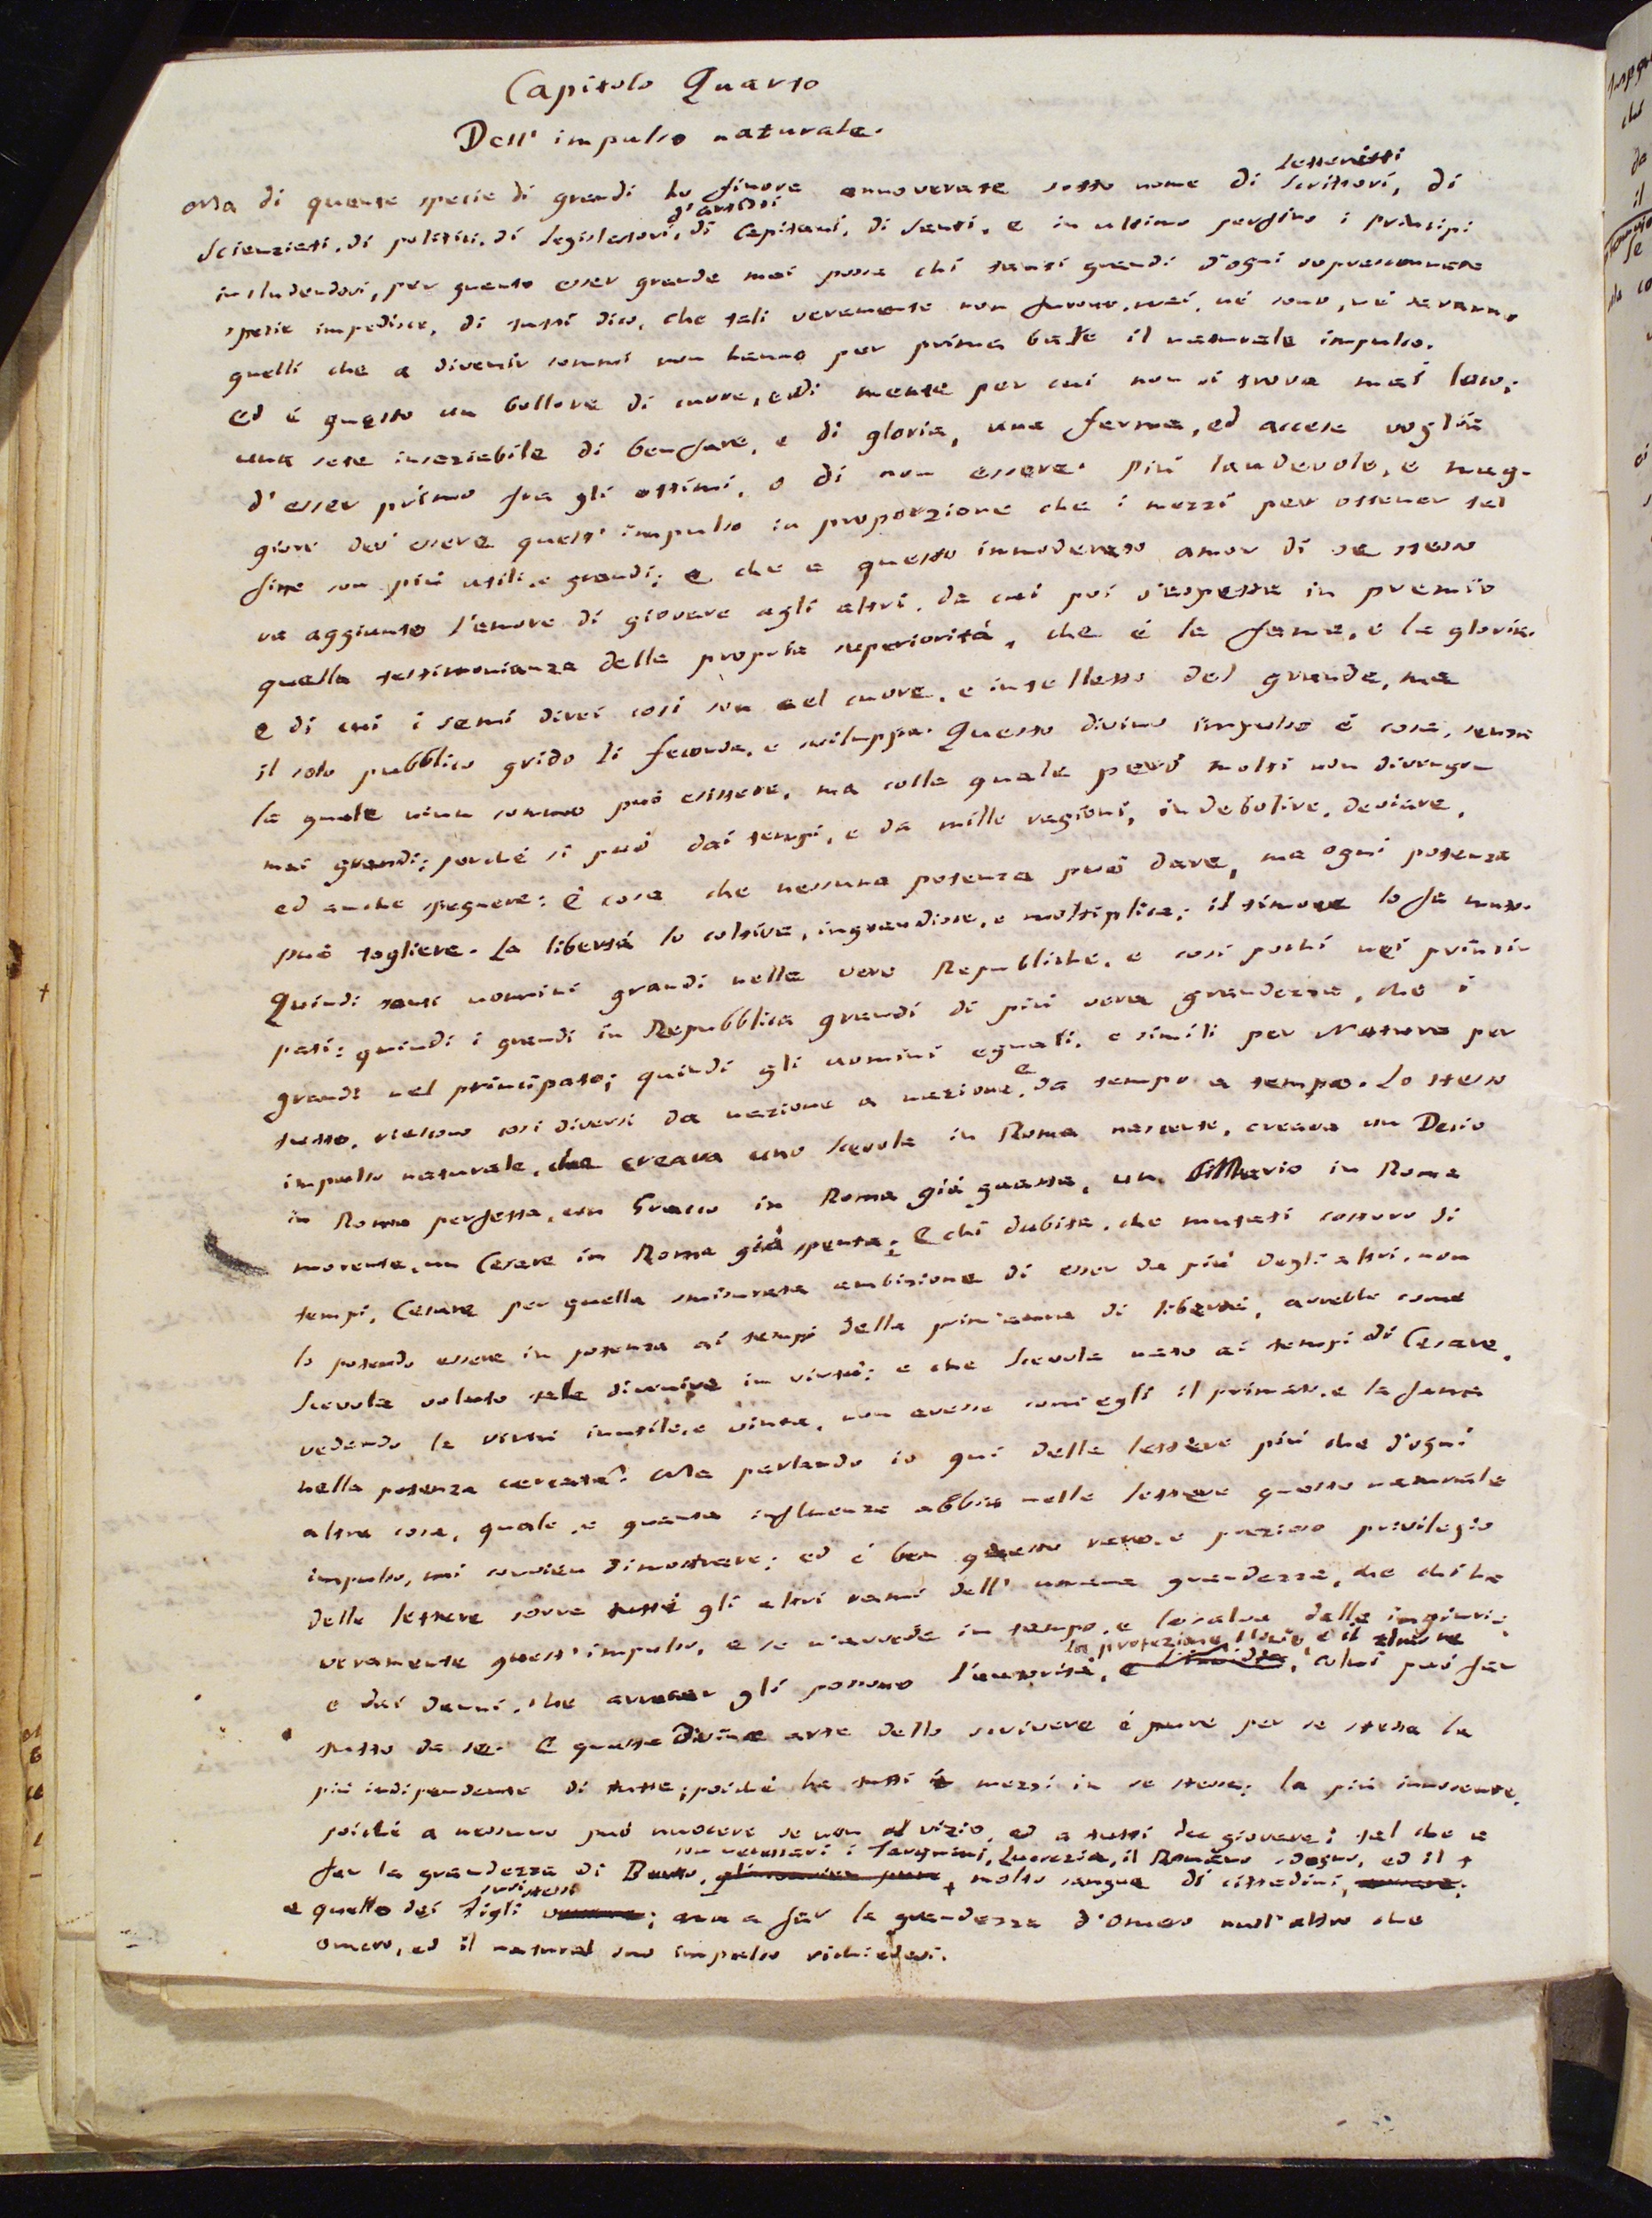 Capitolo Quarto
Dell' impulso naturale.
letteristi
Ma di quante specie di grandi ho finora annoverate sotto nome di Scrittori, di
d'artisti
Scienziati, di politici, di legislatori, di Capitani, di Santi, e in ultimo perfino i Principi
includendovi, per quanto esser grande mai possa chi tanti grandi d'ogni soprascennata
spezie impedisce, di tutti dico, che tali veramente non furono mai, né sono, né saranno
quelli che a divenir sommi non hanno per prima base il naturale impulso.
Ed é questo un bollore di cuore, e di mente per cui non si trova mai loco;
una sete insaziabile di ben fare, e di gloria, una ferma, ed accesa voglia
d'esser primo fra gli ottimi, o di non essere. Più laudevole, e mag-
giore dev' essere quest' impulso in proporzione che i mezzi per ottener tal
fine son più utili, e grandi; e che a questo immoderato amor di se stesso
va aggiunto l'amore di giovare agli altri, da cui poi s'aspetta in premio
quella testimonianza della propria superiorità, che é la fama, e la gloria.
e di cui i semi direi così son nel cuore, e intelletto del grande, ma
il solo pubblico grido li feconda, e sviluppa. Questo divino impulso é cosa, senza
la quale niun sommo può esistere, ma colla quale però molti non divengon
mai grandi; perché si può dai tempi, e da mille ragioni, indebolire, deviare,
ed anche spegnere: é cosa che nessuna potenza può dare, ma ogni potenza
può togliere. La libertà lo coltiva, ingrandisce, e moltiplica; il timore lo fa muto.
Quindi tanti uomini grandi nelle vere Repubbliche, e così pochi nei princi-
pati: quindi i grandi in Repubblica grandi di più vera grandezza, che i
grandi nel principato; quindi gli uomini eguali, e simili per Natura per
tutto, riescono così diversi da nazione a nazione, e da tempo a tempo. Lo stesso
impulso naturale, che creava uno Scevola in Roma nascente, creava un Decio
in Roma perfetta, un Gracco in Roma già guasta, un Mario in Roma
morente, un Cesare in Roma già spenta; E chi dubita, che mutati costoro di
tempi, Cesare per quella smisurata ambizione di esser da più degli altri, non
lo potendo essere in potenza ai tempi della prim'aura di libertà, avrebbe come
Scevola voluto tale divenire in virtù; e che Scevola nato ai tempi di Cesare,
vedendo la virtù inutile, e vinta, non avesse com'egli il primato, e la fama
nella potenza cercata? Ma parlando io qui delle lettere più che d'ogni
altra cosa, quale, e quanta influenza abbia nelle lettere questo naturale
impulso, mi convien dimostrare; ed é ben questo raro, e prezioso privilegio
delle lettere sovra tutti gli altri rami dell' umana grandezza, che chi ha
veramente quest' impulso, e se n'avvede in tempo, e lo salva dalle ingiurie
la protezione, l'ozio, e il timore
e dai danni, che arrecar gli possono l'autorità, colui può far
tutto da se. E questa Divina arte dello scrivere é pure per se stessa la
più indipendente di tutte, poiché ha tutti i mezzi in se stessa; la più innocente,
poiché a nessuno può nuocere se non al vizio, ed a tutti dee giovare; tal che a
son necessari i Tarquini, Lucrezia, il Romano sdegno, ed il +
far la grandezza di Bruto, + molto sangue di cittadini,
suoi stessi
e quello dei figli; ma a far la grandezza d'Omero null'altro che
omero, ed il natural suo impulso richiedesi.